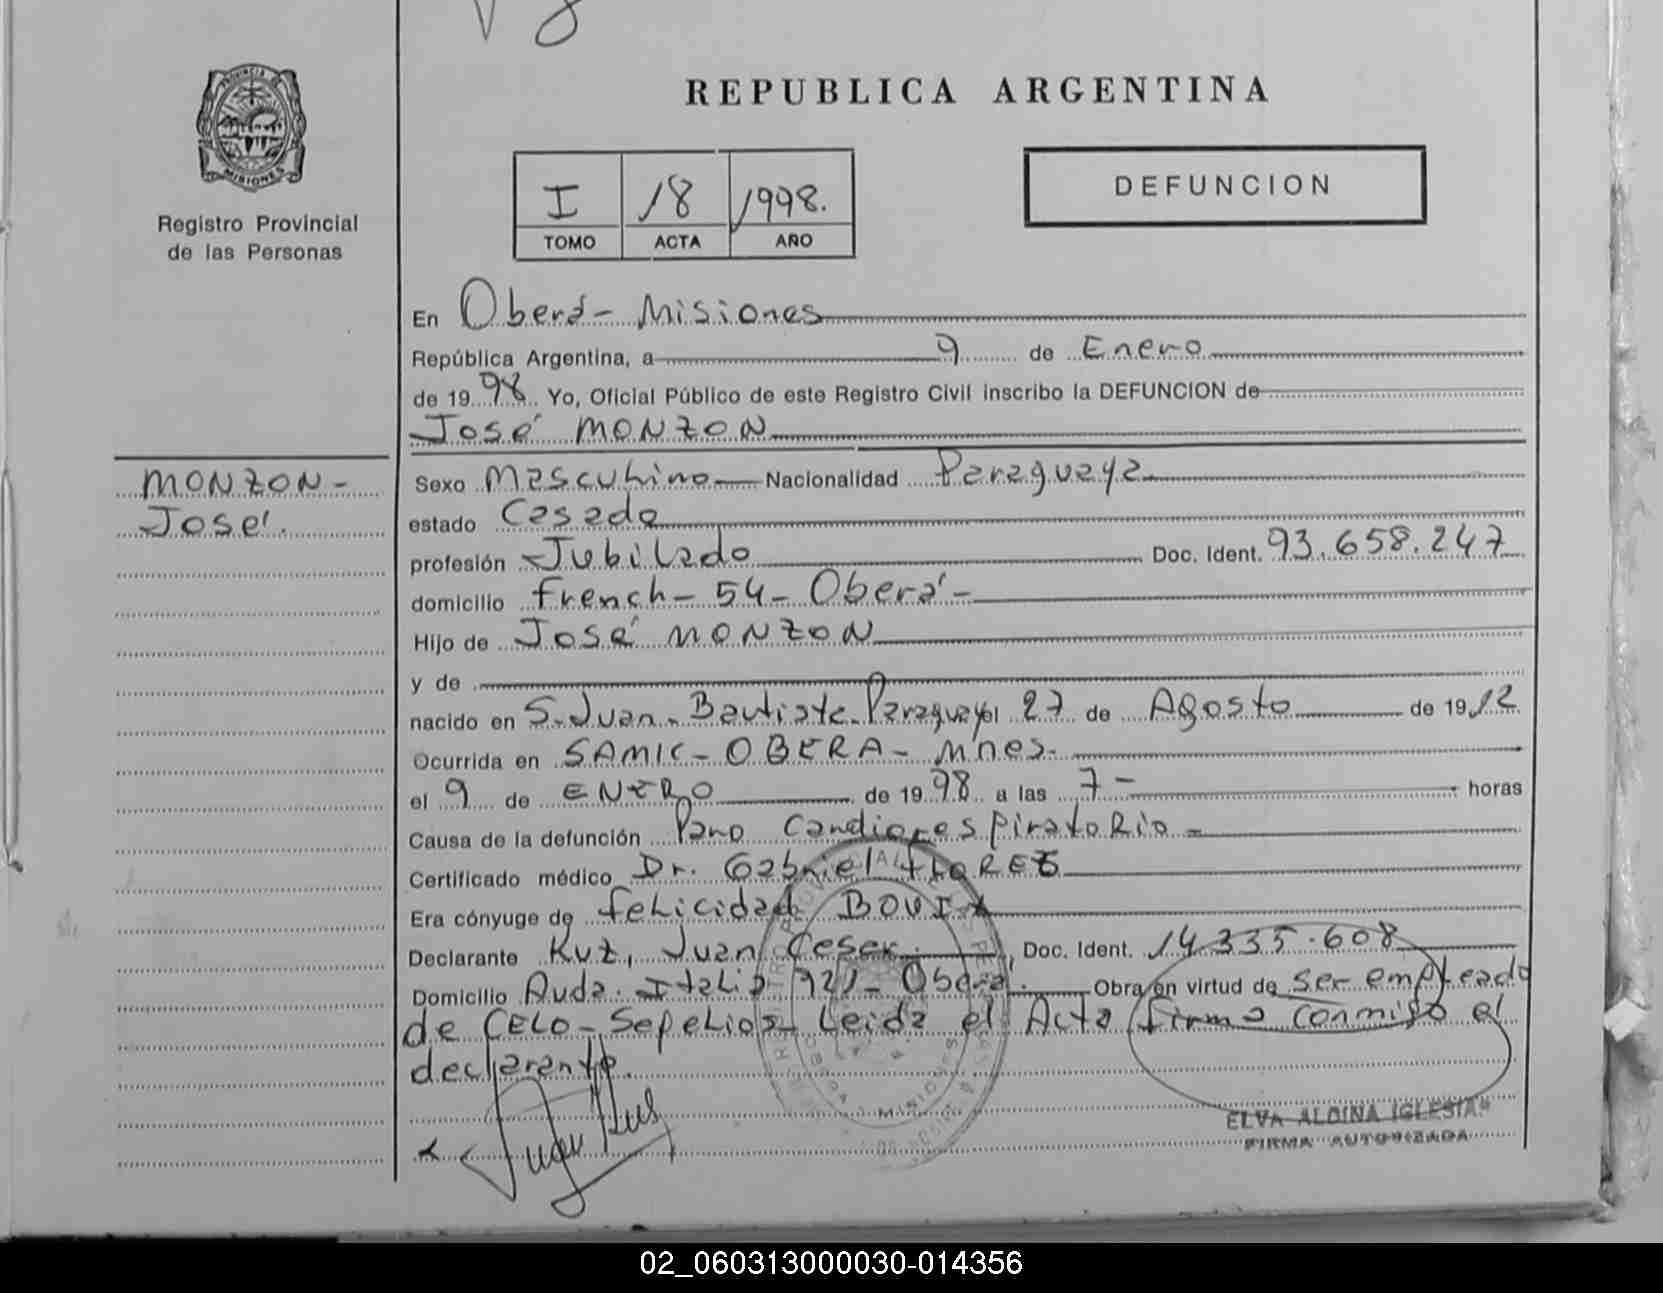 REPUBLICA ARGENTINA
PROVINCIA DE
MISIONES
Registro Provincial
de las Personas
I 18 1998.
TOMO ACTA AÑO
DEFUNCION
En Oberá - Misiones
República Argentina, a 9 de Enero
de 1998 Yo, Oficial Público de este Registro Civil inscribo la DEFUNCION de
José MONZON
MONZON -
José.
Sexo Masculino Nacionalidad Paraguaya
estado Casado
profesión Jubilado Doc. Ident. 93.658.247
domicilio French - 54 - Oberá -
Hijo de José MONZON
y de
nacido en S. Juan. Bautista. Paraguay el 27 de Agosto de 1912
Ocurrida en SAMIC - OBERA - Mnes.
el 9 de ENERO de 1998 a las 7 - horas
Causa de la defunción Paro Cardiorespiratorio -
Certificado médico Dr. Gabriel FLORES
Era cónyuge de Felicidad
Declarante Kuz, Juan Cesar. Doc. Ident. 14.335.608
Domicilio Avda. Italia 921 - Oberá. Obra en virtud de ser empleado
de CELO - Sepelios Leida el Acta firma conmigo el
declarante.
ELVA ALDINA IGLESIAS
FIRMA AUTORIZADA
02_060313000030-014356